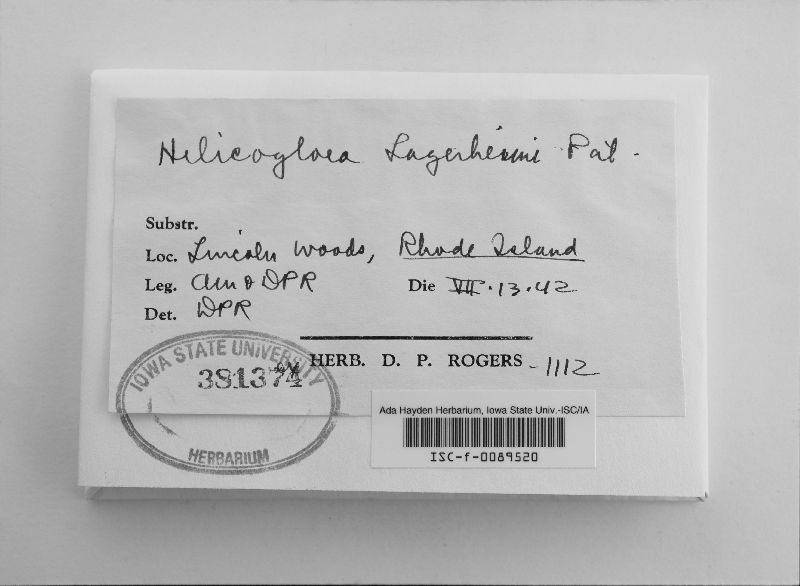 Helicogloea Lagerheimi Pat.
Substr.
Loc. Lincoln Woods, Rhode Island
Leg. & DPR Die VII.13.42
Det. DPR
HERB. D. P. ROGERS - 1112
IOWA STATE UNIVERSITY
381374
HERBARIUM
Ada Hayden Herbarium, Iowa State Univ.-ISC/IA
ISC-f-0089520